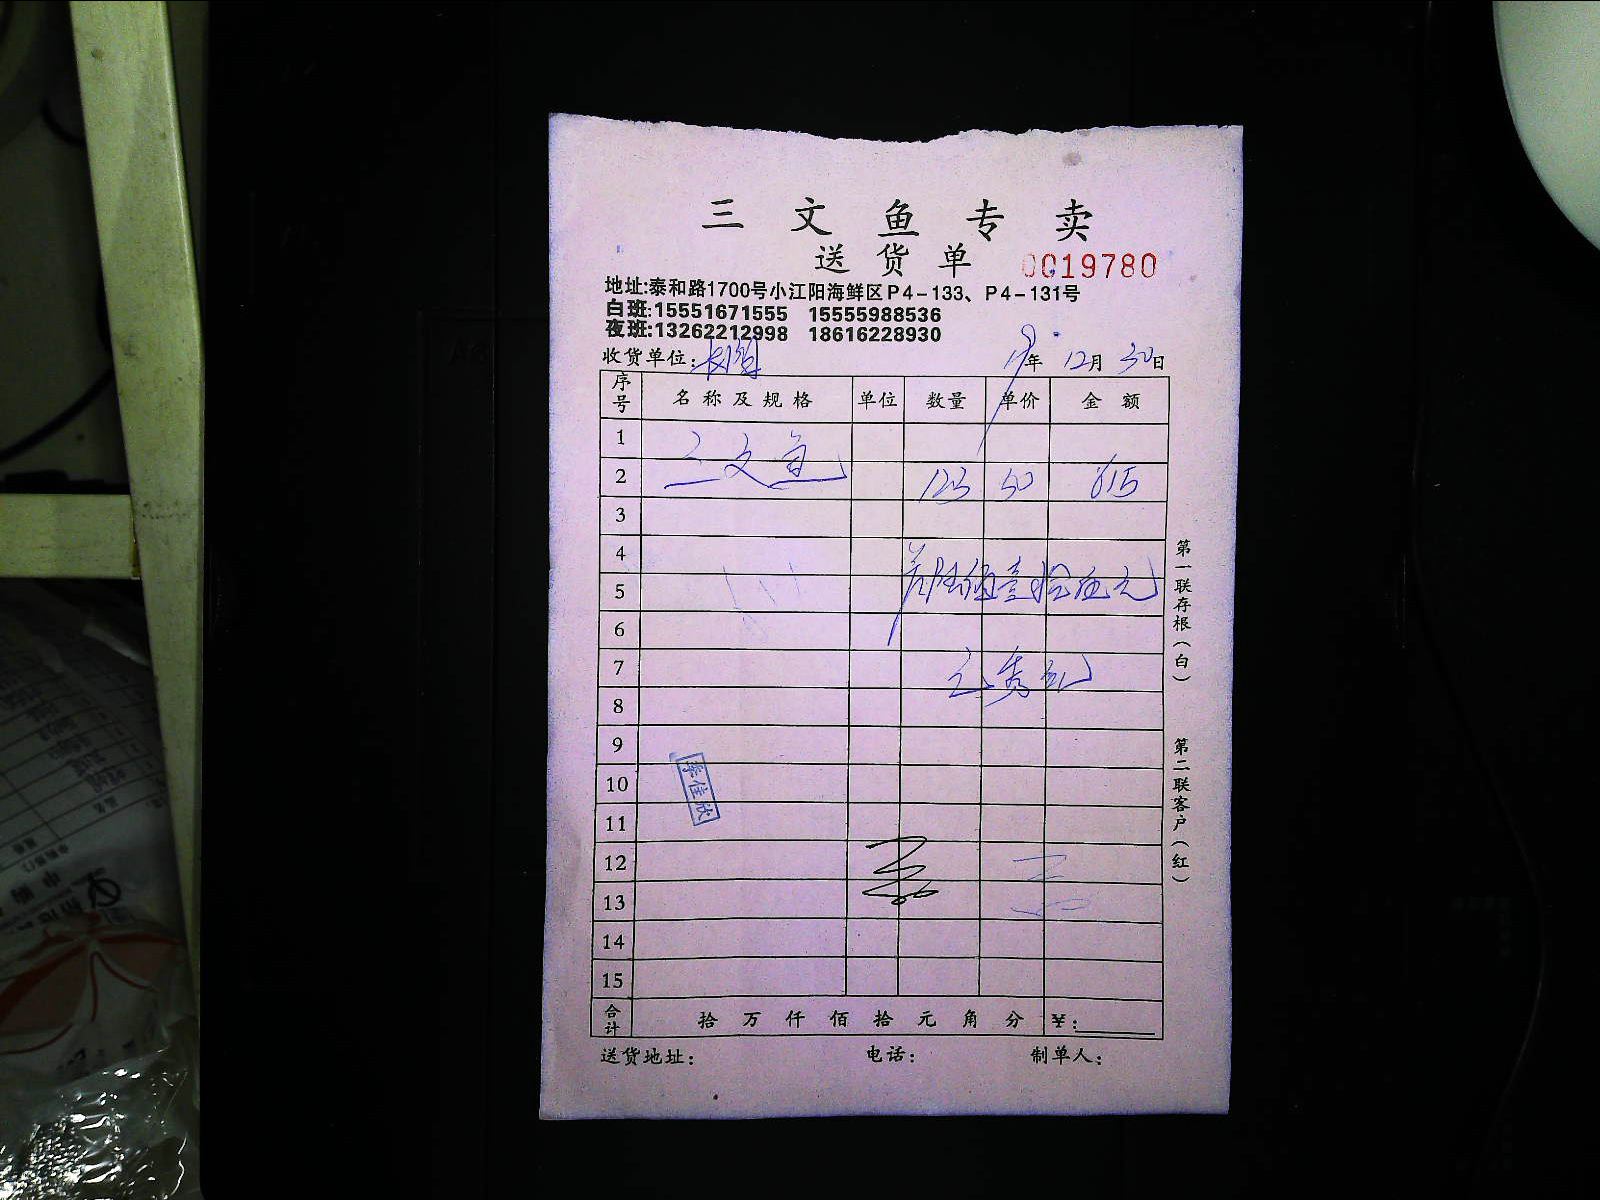 三文鱼专卖
送货单 0019780
地址:泰和路1700号小江阳海鲜区P4-133、P4-131号
白班:15551671555 15555988536
夜班:13262212998 18616228930
收货单位: 19年 12月 30日
序号 名称及规格 单位 数量 单价 金额
1
2 三文鱼 123 50 615
3
4
5 陆佰壹拾伍元
6
7
8
9
10 李佳欣
11
12
13
14
15
合计 拾 万 仟 佰 拾 元 角 分 ¥:
送货地址: 电话: 制单人:
第一联存根(白)
第二联客户(红)